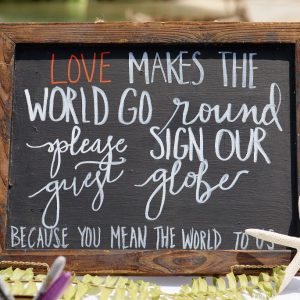 LOVE MAKES THE
WORLD GO round
please SIGN OUR
guest globe
BECAUSE YOU MEAN THE WORLD TO US